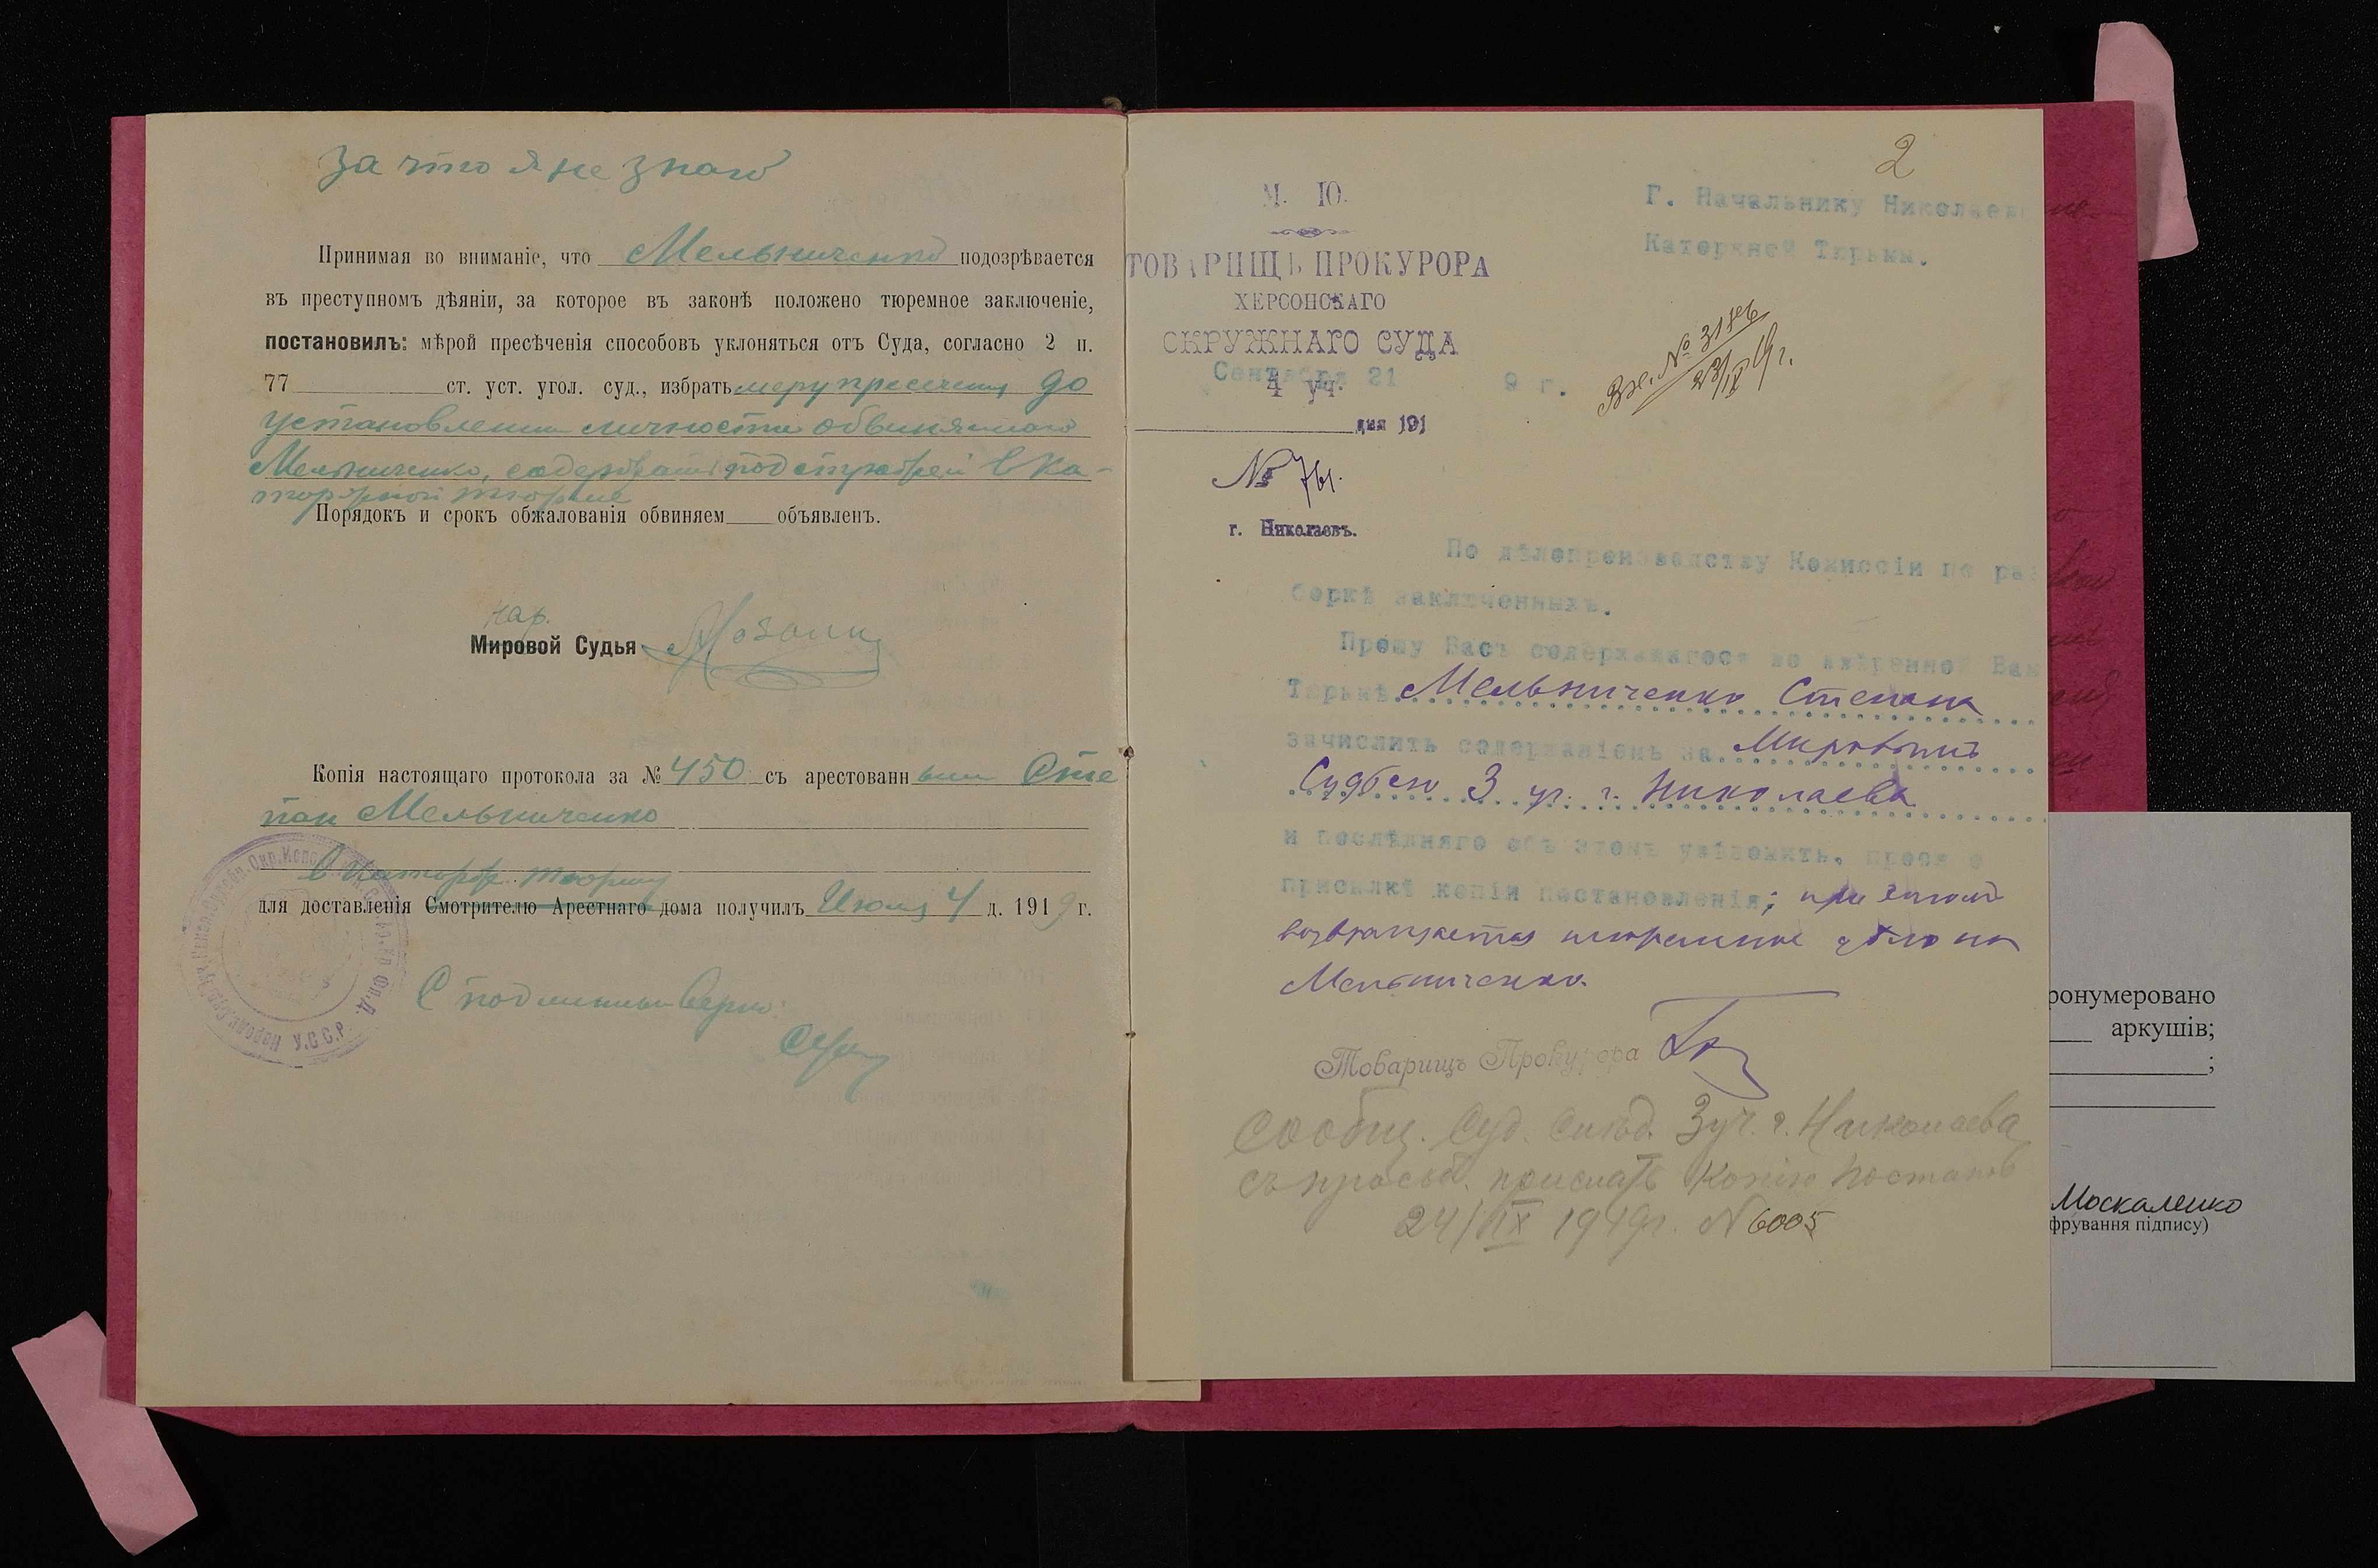 за что я не знаю
Принимая во вниманіе, что Мельниченко подозрѣвается
въ преступномъ дѣяніи, за которое въ законѣ положено тюремное заключеніе,
постановилъ: мѣрой пресѣченія способовъ уклоняться отъ Суда, согласно 2 п.
77 ст. уст. угол. суд., избрать меру пресечения до
установления личности обвиняемого
Мельниченко, содержать под стражей в Ка-
торжной тюрьме
Порядокъ и срокъ обжалованія обвиняем объявленъ.
нар.
Мировой Судья
Копія настоящаго протокола за № 450 съ арестованн ым Сте
пан Мельниченко
в каторж. тюрьму
для доставленія Смотрителю Арестнаго дома получилъ Июля 4 д. 1919 г.
С подлинным верно:
У.С.С.Р.
2
М. Ю.
ТОВАРИЩЪ ПРОКУРОРА
ХЕРСОНСКАГО
ОКРУЖНАГО СУДА
Сентября 21 9 г.
4 уч.
дня 191
№ 761.
г. Николаевъ.
Г. Начальнику Николаев
Каторжной Тюрьмы.
Вх. №
23/IX 19 г.
По дѣлопроизводству Комиссіи по раз
боркѣ заключенныхъ.
Прошу Васъ содержащагося во ввѣренной Вам
Тюрьмѣ Мельниченко Степана
зачислить содержаніемъ за Мировымъ
Судьею 3 уч. г. Николаева
и послѣдняго объ этомъ увѣдомить, прося о
присылкѣ копіи постановленія; при этомъ
возвращается тюремное дѣло на
Мельниченко.
Товарищъ Прокурора
Сообщ. Суд. Слѣд. 3 уч. г. Николаева
съ просьб. прислать копію постанов
24/IX 1919 г. N 6005
ронумеровано
аркушів;
;
Москаленко
фрування підпису)